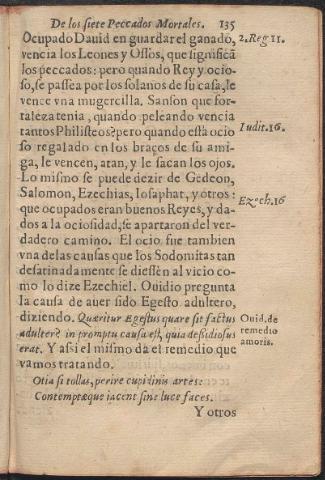 De los siete Peccados Mortales. 135
Ocupado Dauid en guardar el ganado, 2. Reg 11.
vencia los Leones y Ossos, que significã
los peccados: pero quando Rey y ocio-
so, se passea por los solanos de su casa, le
vence vna mugercilla. Sanson que for-
taleza tenia, quando peleando vencia
tantos Philisteos? pero quando està ocio Iudit. 16.
so regalado en los braços de su ami-
ga, le vencen, atan, y le sacan los ojos.
Lo mismo se puede dezir de Gedeon,
Salomon, Ezechias, Iosaphat, y otros: Ezech. 16
que ocupados eran buenos Reyes, y da-
dos a la ociosidad, se apartaron del ver-
dadero camino. El ocio fue tambien
vna de las causas que los Sodomitas tan
desatinadamente se diessen al vicio co-
mo lo dize Ezechiel. Ouidio pregunta
la causa de auer sido Egesto adultero,
diziendo. Quæritur Egestus quare sit factus Ouid. de
adulter? in promptu causa est, quia desidiosus remedio
erat. Y assi el mismo da el remedio que amoris.
vamos tratando.
Otia si tollas, perire cupidinis artes:
Contemptæque iacent sine luce faces.
Y otros